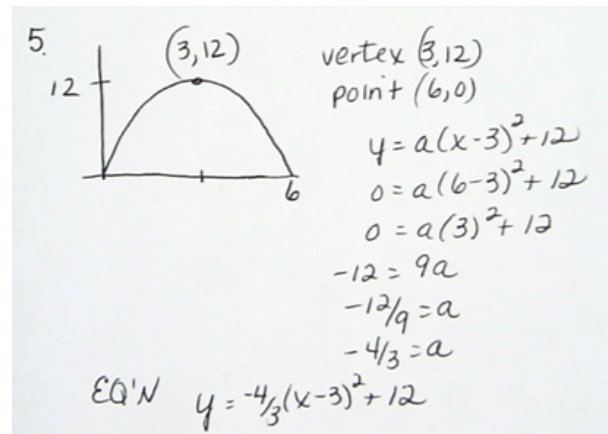 5.
(3,12)
12
6
vertex (3,12)
point (6,0)
y = a(x-3)²+12
0 = a(6-3)²+12
0 = a(3)²+12
-12 = 9a
-12/9 = a
-4/3 = a
EQ'N y = -4/3(x-3)²+12